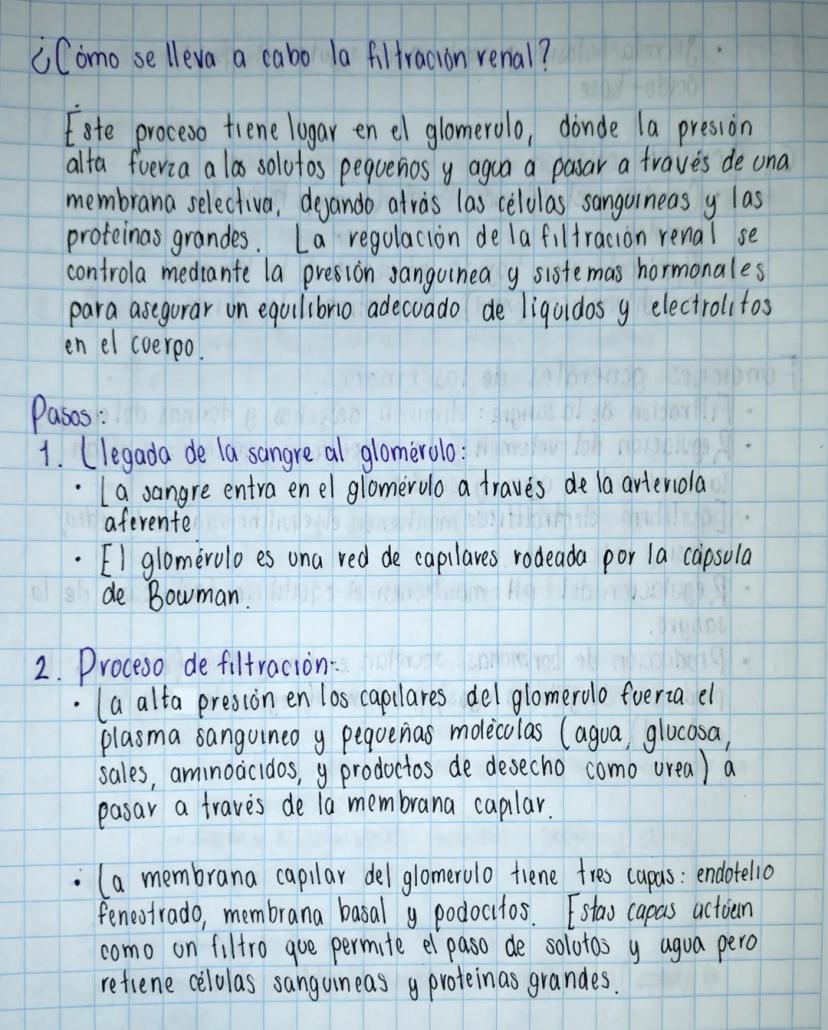 ¿Cómo se lleva a cabo la filtración renal?
Este proceso tiene lugar en el glomerulo, dónde la presión
alta fuerza a los solutos pequeños y agua a pasar a través de una
membrana selectiva, dejando atrás las células sanguineas y las
proteinas grandes. La regulación de la filtración renal se
controla mediante la presión sanguinea y sistemas hormonales
para asegurar un equilibrio adecuado de liquidos y electrolitos
en el cuerpo.
Pasos:
1. Llegada de la sangre al glomérulo:
· La sangre entra en el glomérulo a través de la arteriola
aferente.
· El glomérulo es una red de capilares rodeada por la cápsula
de Bowman.
2. Proceso de filtración:
· La alta presión en los capilares del glomerulo fuerza el
plasma sanguineo y pequeñas moléculas (agua, glucosa,
sales, aminoácidos, y productos de desecho como urea) a
pasar a través de la membrana capilar.
· La membrana capilar del glomerulo tiene tres capas: endotelio
fenestrado, membrana basal y podocitos. Estas capas actúan
como un filtro que permite el paso de solutos y agua pero
retiene células sanguineas y proteinas grandes.